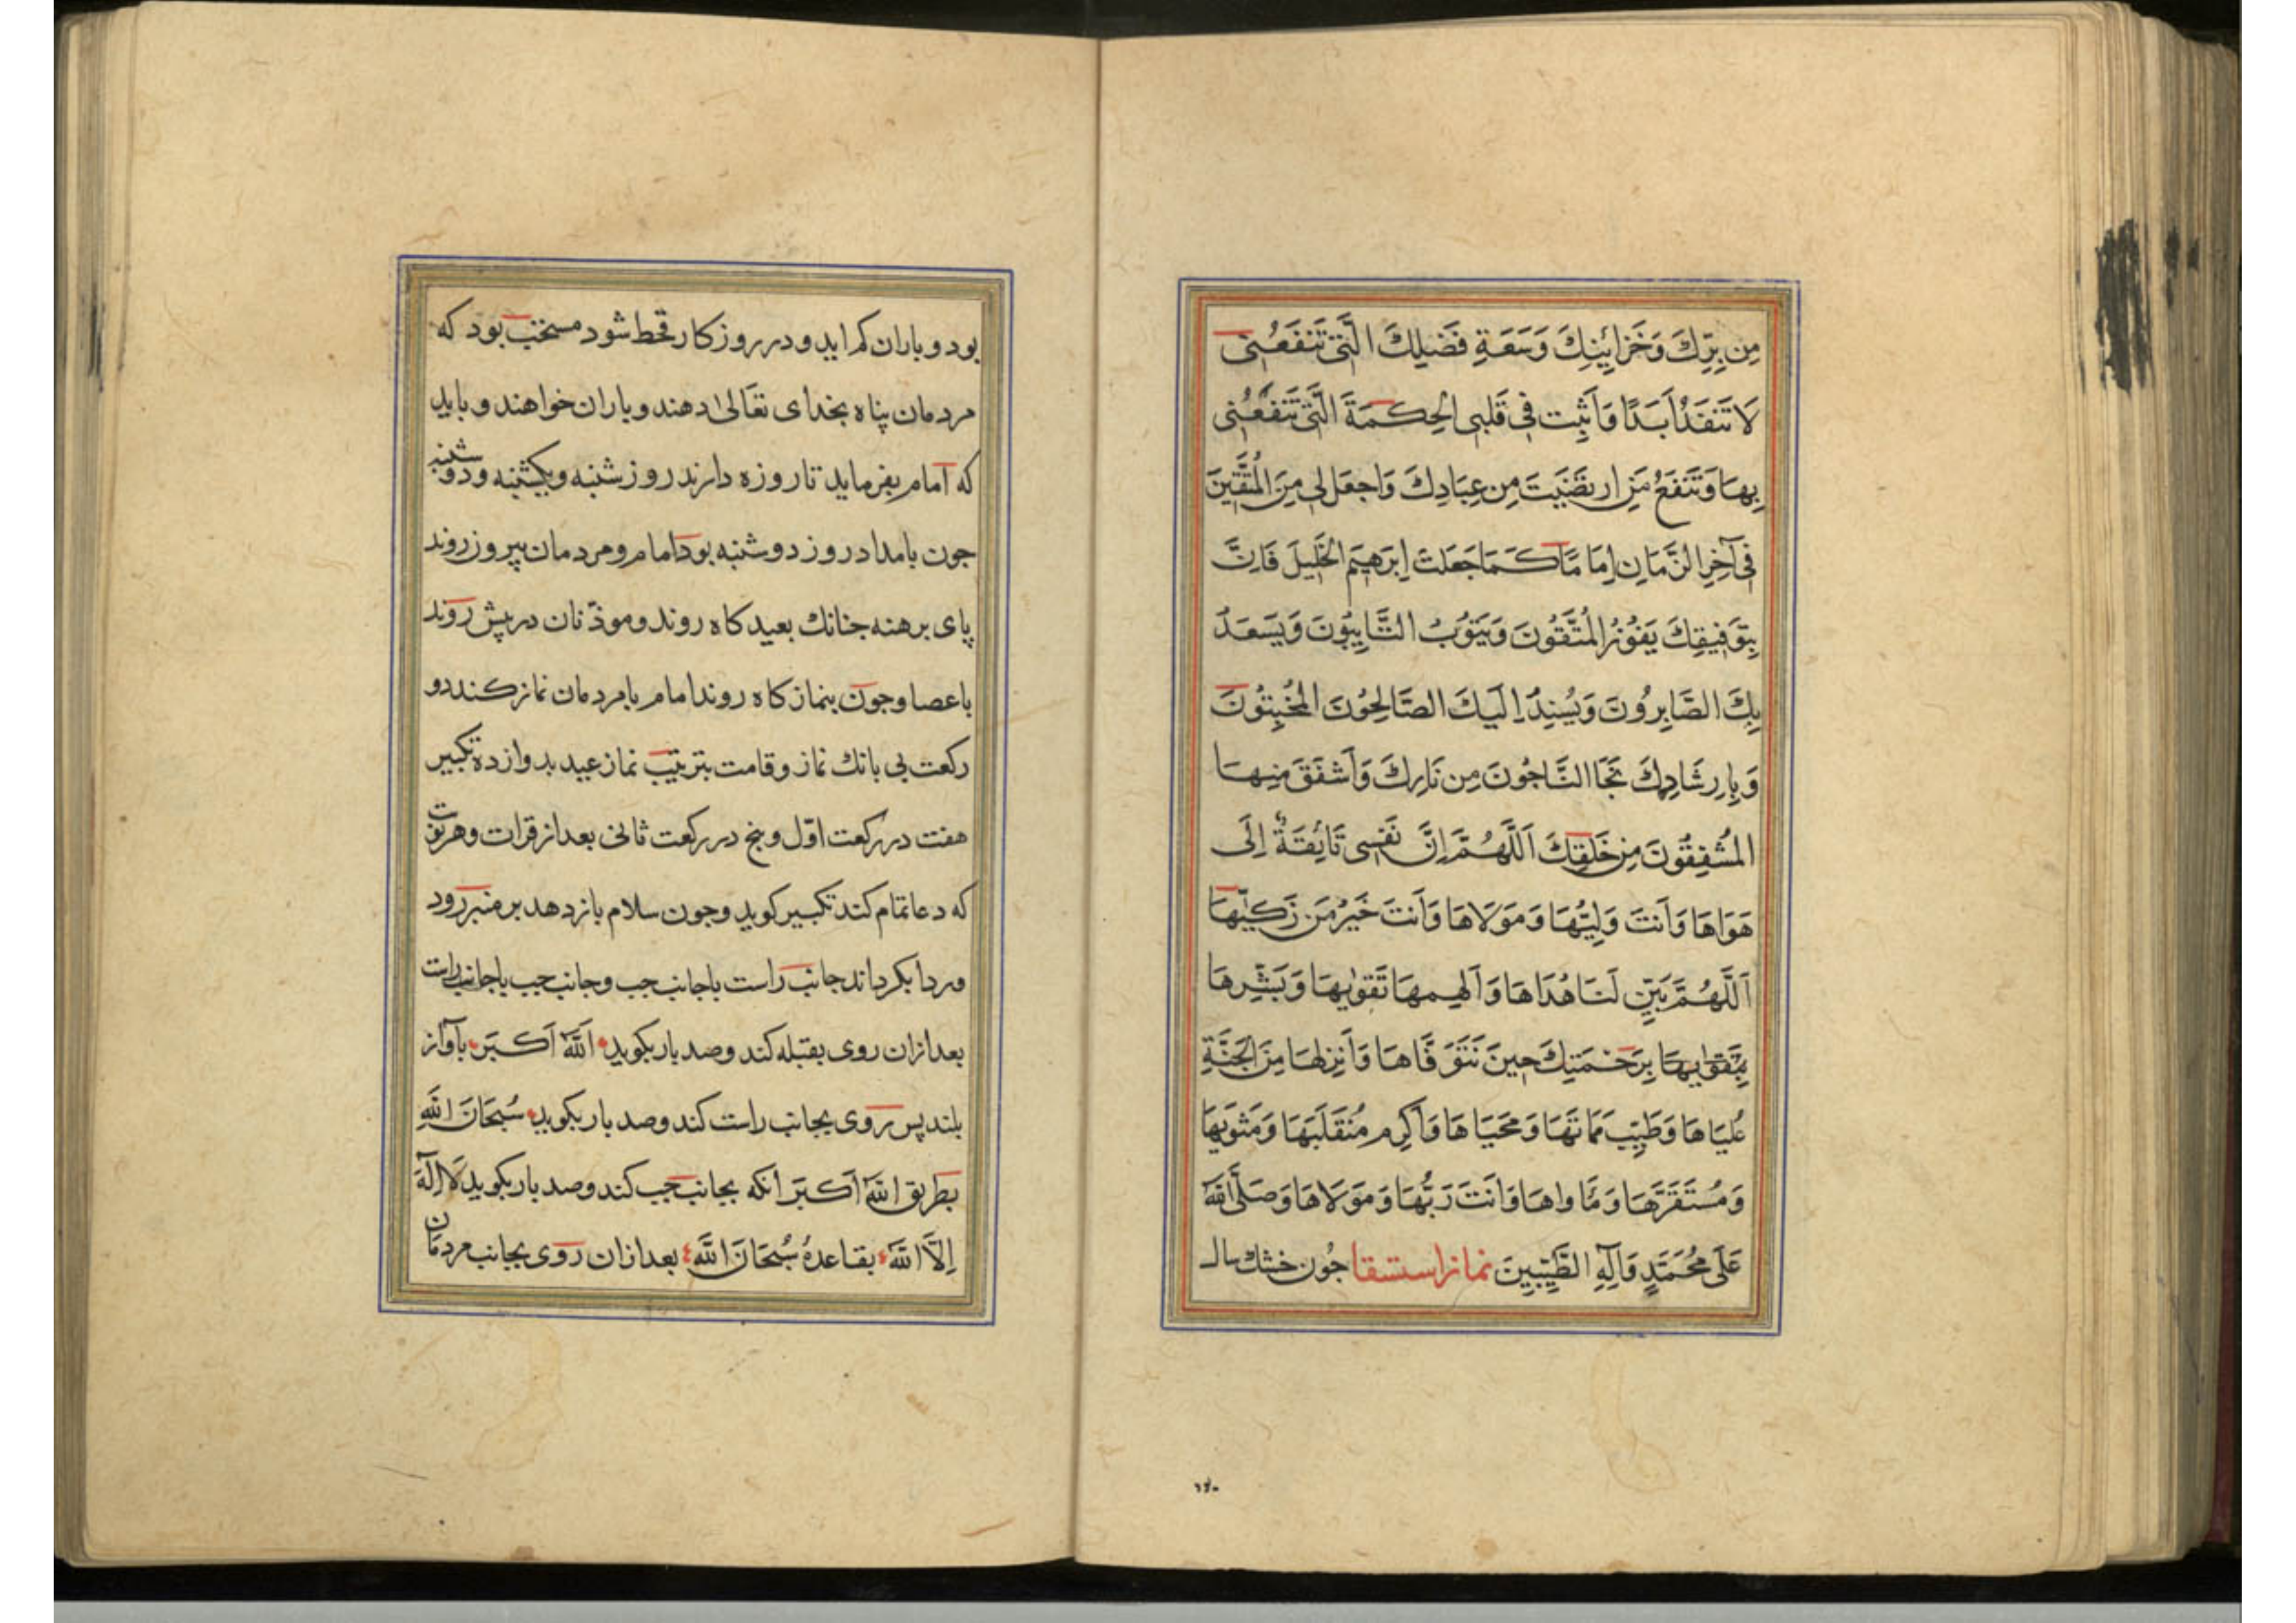 مِن بِرِّكَ وَخَزَائِنِكَ وَسَعَةِ فَضلِكَ الَّتِی تَنفَعُنِی
لَا تَنفَدُ اَبَدًا وَاَثبِت فِی قَلبِی الحِكمَةَ الَّتِی تَنفَعُنِی
بِهَا وَتَنفَعُ مَنِ ارتَضَيتَ مِن عِبَادِكَ وَاجعَل لِی مِنَ المُتَّقِينَ
فِی آخِرِ الزَّمَانِ اِمَامًا كَمَا جَعَلتَ اِبرَهِيمَ الخَلِيلَ فَاِنَّ
بِتَوفِيقِكَ يَفُوزُ المُتَّقُونَ وَيَتُوبُ التَّايِبُونَ وَيَسعَدُ
بِكَ الصَّابِرُونَ وَيُسنِدُ اِلَيكَ الصَّالِحُونَ المُخبِتُونَ
وَبِاِرشَادِكَ نَجَا النَّاجُونَ مِن نَارِكَ وَاَشفَقَ مِنهَا
المُشفِقُونَ مِن خَلقِكَ اَللَّهُمَّ اِنَّ نَفسِی تَائِقَةٌ اِلَی
هَوَاهَا وَاَنتَ وَلِيُّهَا وَمَولَاهَا وَاَنتَ خَيرُ مَن زَكّيٰهَا
اَللَّهُمَّ بَيِّن لَنَا هُدَاهَا وَاَلهِمهَا تَقوٰيهَا وَبَشِّرهَا
بِتَقوٰيهَا بِرَحمَتِكَ حِينَ تَتَوَفَّاهَا وَاَنزِلهَا مِنَ الجَنَّةِ
عُليَاهَا وَطَيِّب مَمَاتَهَا وَمَحيَاهَا وَاَكرِم مُنقَلَبَهَا وَمَثوٰيهَا
وَمُستَقَرَّهَا وَمَاواهَا وَاَنتَ رَبُّهَا وَمَولَاهَا وَصَلَّی اللّٰهُ
عَلَی مُحَمَّدٍ وَآلِهِ الطَّيِّبِينَ نماز استسقا جُون خشك سال
۱۴۰
بود و باران كم ايد و در روزكار قحط شود مستحب بود كه
مردمان پناه بخدای تعَالیٰ دهند و باران خواهند و بايد
كه امام بفرمايد تا روزه دارند روز شنبه و يكشنبه و دوشنبه
جون بامداد روز دوشنبه بود امام و مردمان بيرون روند
پای برهنه جنانك بعيدكاه روند و موذّنان در پيش روند
با عصا وجون بنمازكاه روند امام با مردمان نماز كند دو
ركعت بی بانك نماز و قامت بترتيب نماز عيد بدوازده تكبير
هفت در ركعت اوّل و پنج در ركعت ثانی بعد از قرات و هر نوبت
كه دعا تمام كند تكبير كويد وجون سلام بازدهد بر منبر رود
و ردا بكرداند جانب راست با جانب جب وجانب جب با جانب راست
بعد ازان روی بقبله كند وصد بار بكويد اَللّٰهُ اَكبَر بآواز
بلند پس روی بجانب راست كند و صد بار بكويد سُبحَانَ اللّٰهِ
بطريق اللّٰهُ اَكبَر انكه بجانب جب كند و صد بار بكويد لَا اِلَهَ
اِلَّا اللّٰهُ بقاعدهٔ سُبحَانَ اللّٰهِ بعد ازان روی بجانب مردمان